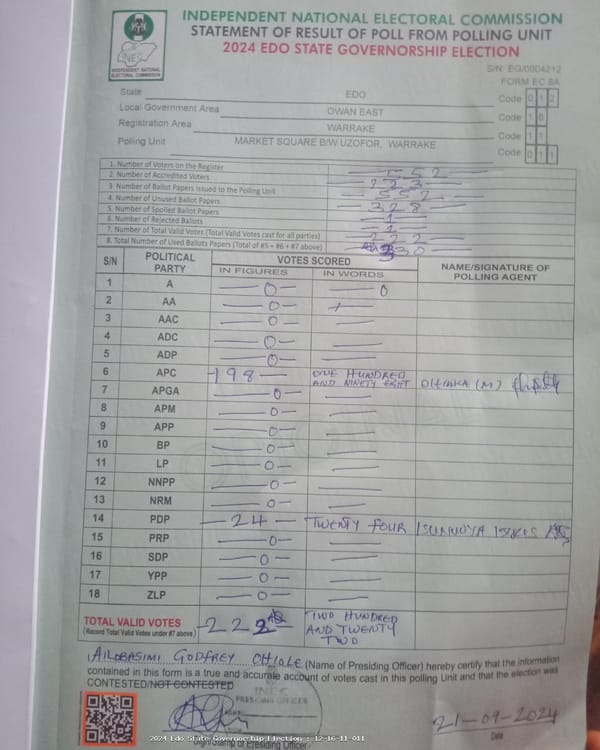 INDEPENDENT NATIONAL ELECTORAL COMMISSION
STATEMENT OF RESULT OF POLL FROM POLLING UNIT
2024 EDO STATE GOVERNORSHIP ELECTION
INEC
INDEPENDENT NATIONAL
ELECTORAL COMMISSION
S/N: EG/0004212
FORM EC 8A
State EDO Code 0 1 2
Local Government Area OWAN EAST Code 1 6
Registration Area WARRAKE Code 1 1
Polling Unit MARKET SQUARE B/W UZOFOR, WARRAKE Code 0 1 1
1. Number of Voters on the Register 552
2. Number of Accredited Voters 223
3. Number of Ballot Papers Issued to the Polling Unit 552
4. Number of Unused Ballot Papers 328
5. Number of Spoiled Ballot Papers 1
6. Number of Rejected Ballots 1
7. Number of Total Valid Votes (Total Valid Votes cast for all parties) 222
8. Total Number of Used Ballots Papers (Total of #5 + #6 + #7 above)
S/N POLITICAL PARTY VOTES SCORED NAME/SIGNATURE OF POLLING AGENT
IN FIGURES IN WORDS
1 A 0 0
2 AA 0
3 AAC 0
4 ADC 0
5 ADP 0
6 APC 198 ONE HUNDRED AND NINETY EIGHT (M)
7 APGA 0
8 APM 0
9 APP 0
10 BP 0
11 LP 0
12 NNPP 0
13 NRM 0
14 PDP 24 TWENTY FOUR
15 PRP 0
16 SDP 0
17 YPP 0
18 ZLP 0
TOTAL VALID VOTES 222 TWO HUNDRED AND TWENTY TWO
(Record Total Valid Votes under #7 above)
AILOBASIMI GODFREY OHIOLE (Name of Presiding Officer) hereby certify that the information
contained in this form is a true and accurate account of votes cast in this polling Unit and that the election was
CONTESTED/NOT CONTESTED
INEC
PRESIDING OFFICER
21-09-2024
Sign/Stamp of Presiding Officer
Date
2024 Edo State Governorship Election : 12-16-11-011